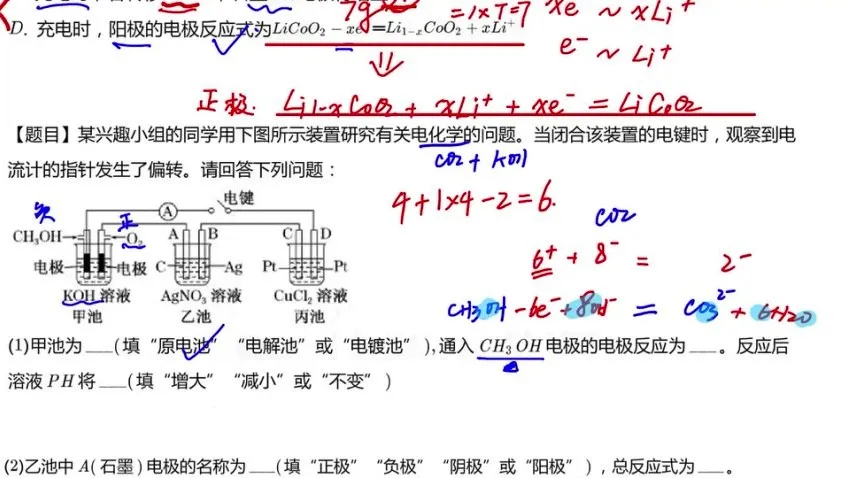 7g =1×7=7 xe ~ xLi⁺
D. 充电时，阳极的电极反应式为LiCoO₂－xe＝Li₁₋ₓCoO₂＋xLi⁺
e⁻ ~ Li⁺
正极: Li1-xCoO2 + xLi⁺ + xe⁻ = LiCoO2
【题目】某兴趣小组的同学用下图所示装置研究有关电化学的问题。当闭合该装置的电键时，观察到电
流计的指针发生了偏转。请回答下列问题：
CO2 + KOH
4+1×4-2=6.
CO2
6⁺ + 8⁻ = 2⁻
CH3OH -6e⁻ +8OH⁻ = CO3²⁻ + 6H2O
负 正 A 电键
CH₃OH O₂ A B C D
电极 电极 C Ag Pt Pt
KOH 溶液 AgNO₃ 溶液 CuCl₂ 溶液
甲池 乙池 丙池
(1)甲池为 ___(填“原电池” “电解池”或“电镀池” ),通入 CH₃OH 电极的电极反应为 ___。反应后
溶液 PH 将 ___(填“增大” “减小”或“不变” )
(2)乙池中 A(石墨)电极的名称为 ___(填“正极” “负极” “阴极”或“阳极” ) ，总反应式为 ___。